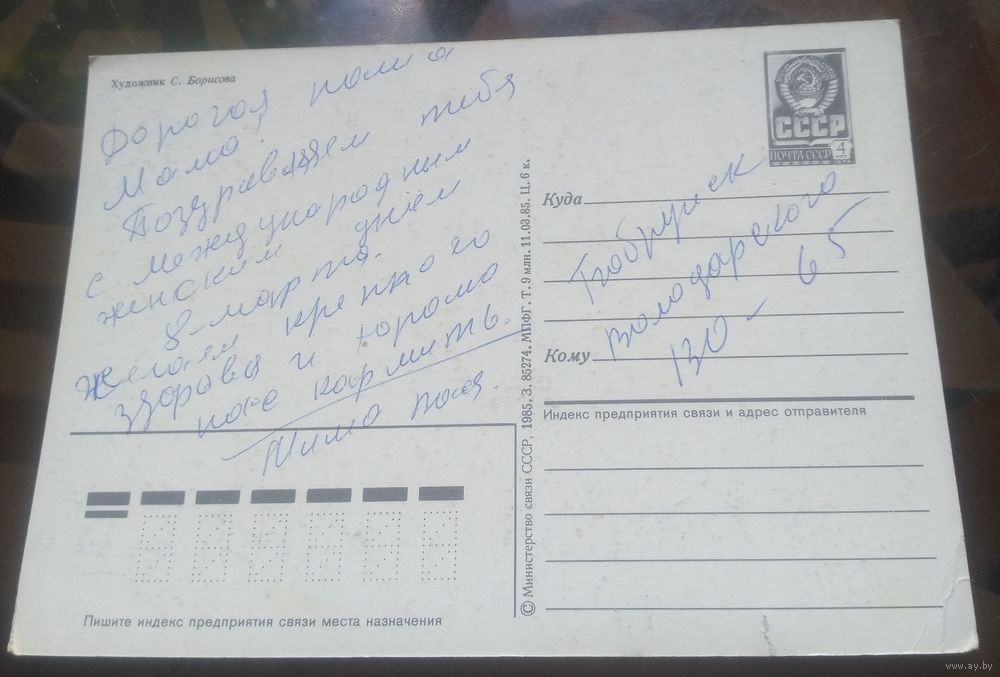 Художник С. Борисова
Дорогая
Мама!
Поздравляем тебя
с международным
женским днём
8-марта.
Желаем крепкого
здоровья и хорошо
нас кормить.
СССР
ПОЧТА СССР 4
1976
Куда
Бобруйск
Володарского
130 - 65
Кому
Индекс предприятия связи и адрес отправителя
Пишите индекс предприятия связи места назначения
© Министерство связи СССР, 1985. З. 85274. МПФГ. Т. 9 млн. 11.03.85. Ц. 6 к.
www.ay.by